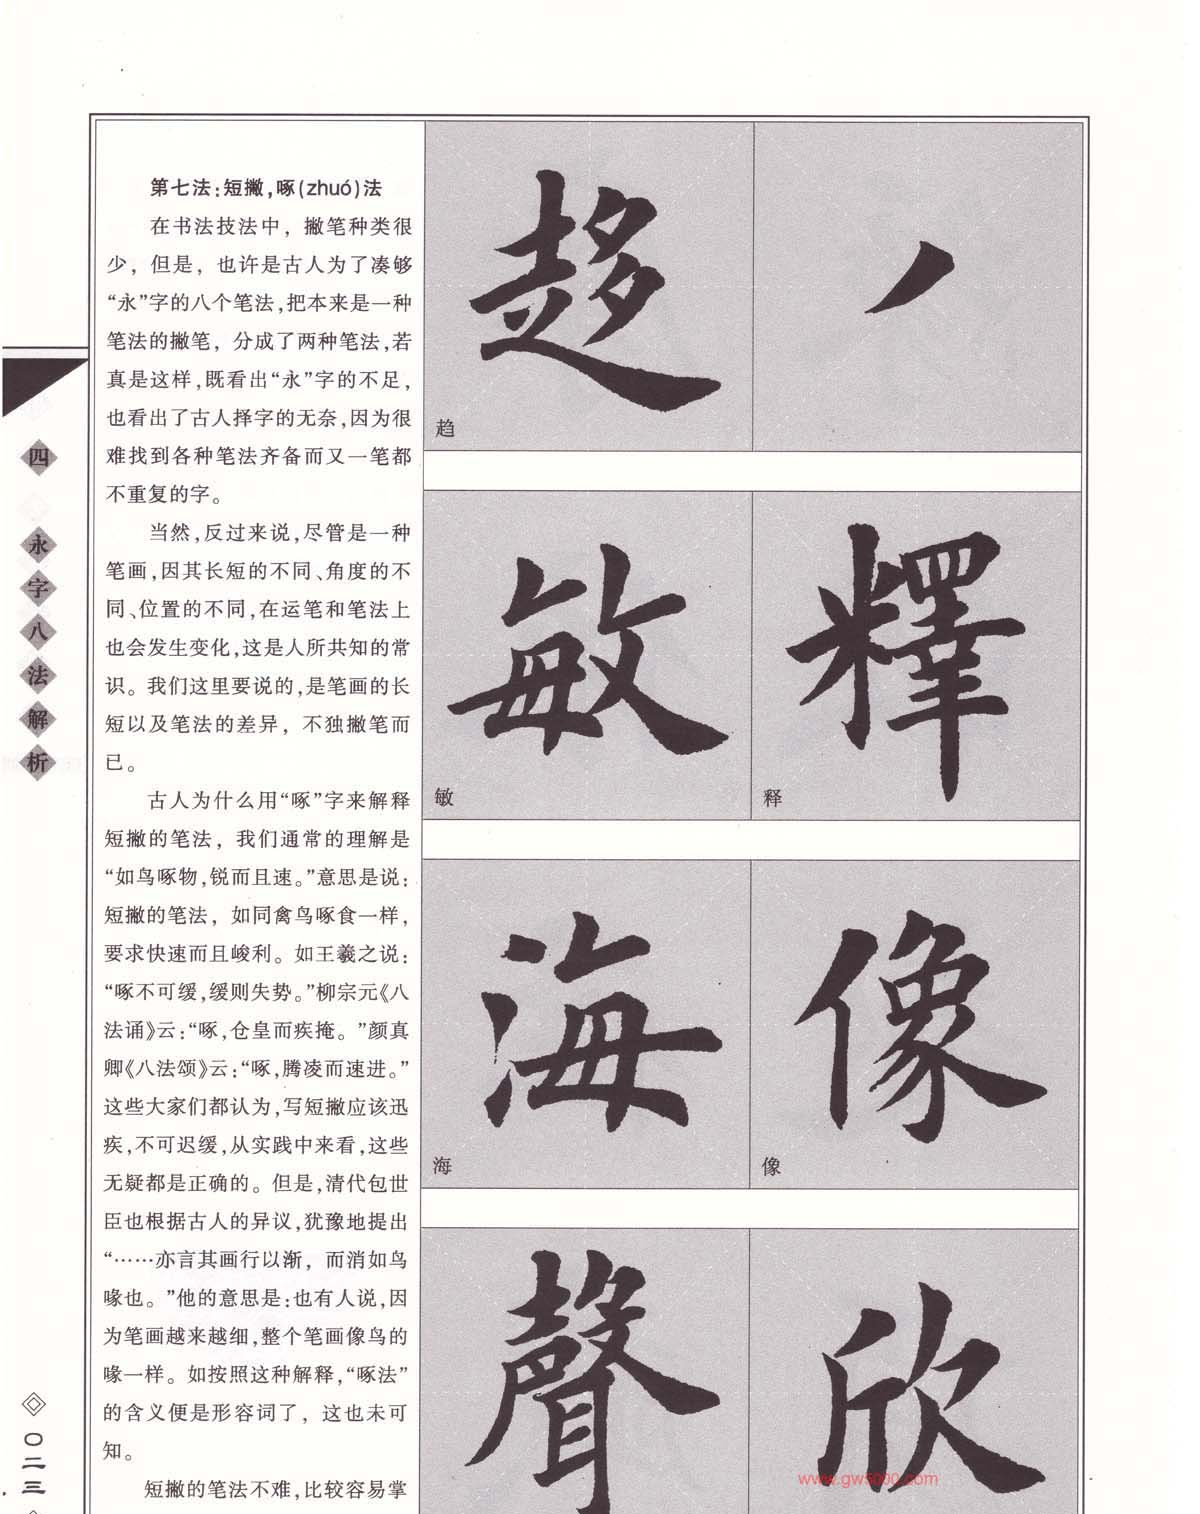 第七法：短撇，啄（zhuó）法
在书法技法中，撇笔种类很
少，但是，也许是古人为了凑够
“永”字的八个笔法，把本来是一种
笔法的撇笔，分成了两种笔法，若
真是这样，既看出“永”字的不足，
也看出了古人择字的无奈，因为很
难找到各种笔法齐备而又一笔都
不重复的字。
当然，反过来说，尽管是一种
笔画，因其长短的不同、角度的不
同、位置的不同，在运笔和笔法上
也会发生变化，这是人所共知的常
识。我们这里要说的，是笔画的长
短以及笔法的差异，不独撇笔而
已。
古人为什么用“啄”字来解释
短撇的笔法，我们通常的理解是
“如鸟啄物，锐而且速。”意思是说：
短撇的笔法，如同禽鸟啄食一样，
要求快速而且峻利。如王羲之说：
“啄不可缓，缓则失势。”柳宗元《八
法诵》云：“啄，仓皇而疾掩。”颜真
卿《八法颂》云：“啄，腾凌而速进。”
这些大家们都认为，写短撇应该迅
疾，不可迟缓，从实践中来看，这些
无疑都是正确的。但是，清代包世
臣也根据古人的异议，犹豫地提出
“……亦言其画行以渐，而消如鸟
喙也。”他的意思是：也有人说，因
为笔画越来越细，整个笔画像鸟的
喙一样。如按照这种解释，“啄法”
的含义便是形容词了，这也未可
知。
短撇的笔法不难，比较容易掌
趋
趋
丿
敏
敏
釋
释
海
海
像
像
聲
欣
四 永字八法解析
〇二三
www.gw5000.com